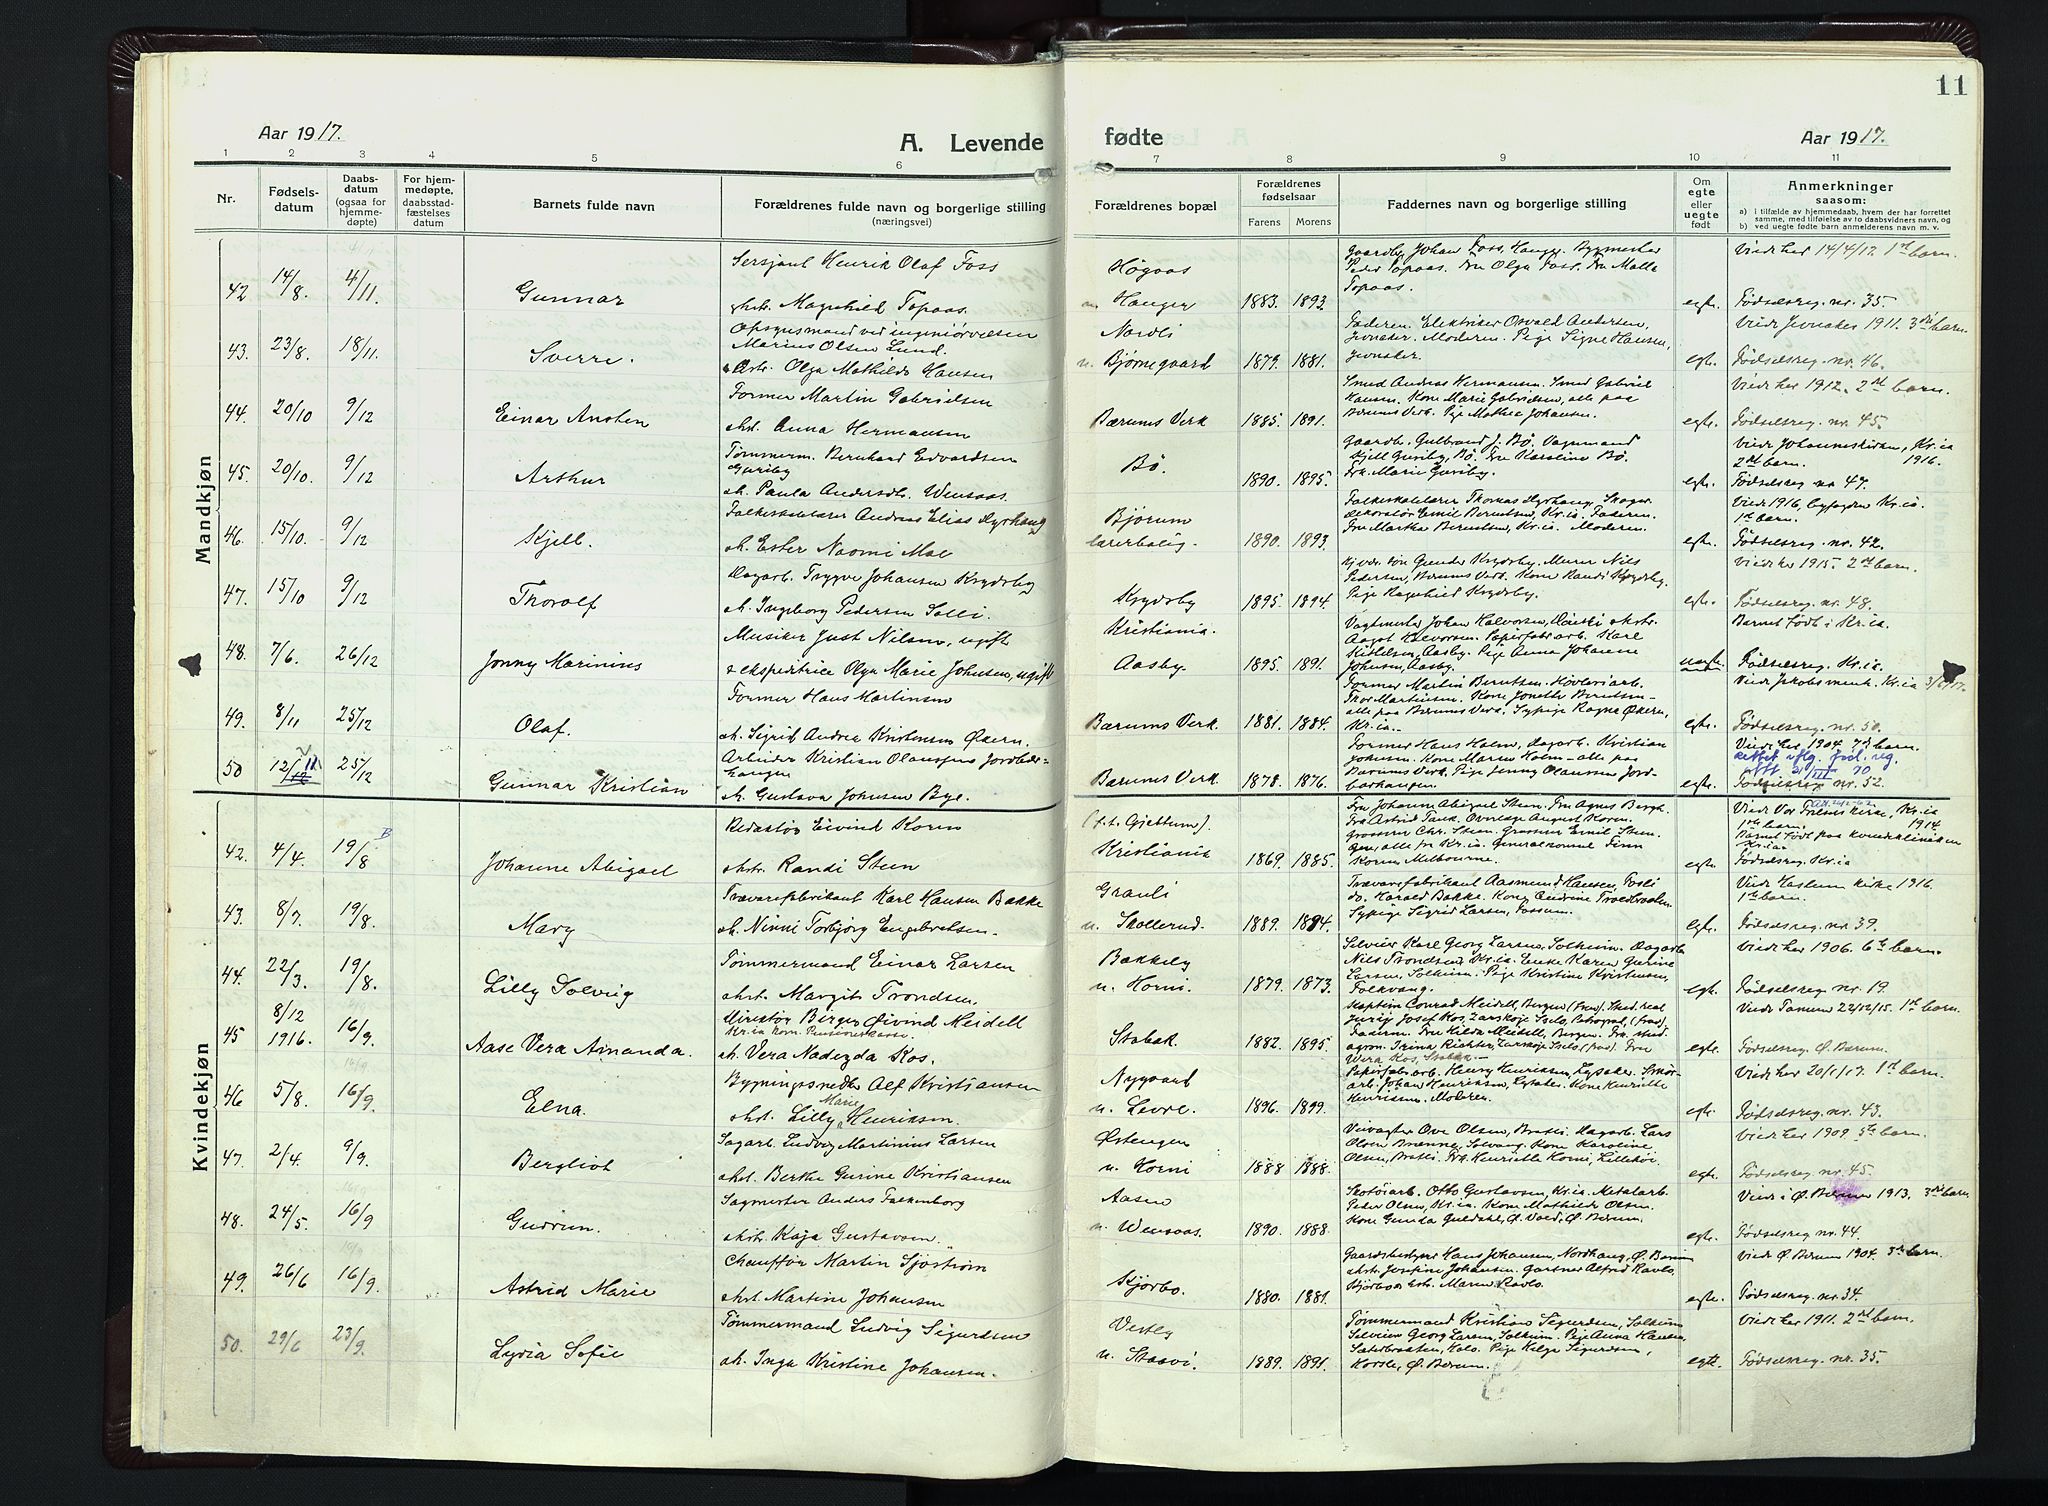 11
Aar 1917.
A. Levende
fødte
Aar 1917.
1 2 3 4 5 6 7 8 9 10 11
Nr.
Fødsels-
datum
Daabs-
datum
(ogsaa for
hjemme-
døpte)
For hjem-
medøpte,
daabsstad-
fæstelses
datum
Barnets fulde navn
Forældrenes fulde navn og borgerlige stilling
(næringsvei)
Forældrenes bopæl
Forældrenes
fødselsaar
Farens Morens
Faddernes navn og borgerlige stilling
Om
egte
eller
uegte
født
Anmerkninger
saasom:
a) i tilfælde av hjemmedaab, hvem der har forrettet
samme, med tilføielse av to daabsvidners navn, og
b) ved uegte fødte barn anmelderens navn m. v.
Mandkjøn
Sersjant Henrik Olaf Foss
42 14/8. 4/11. Gunnar
Magnhild Topaas.
Høgaas
Hauger 1883. 1893.
Peder Topaas. Fru Olga Foss. Fru Malla
Topaas.
egte. Viedt her 14/4/17. 1st barn.
Fødselsreg. nr. 35.
43. 23/8. 18/11. Sverre.
Opsynsmand ved ingeniørvæsen
Marius Olsen Lund.
Olga Mathilde Hansen
Nordli
u. Bjørnegaard 1879. 1881.
Faderen. Elektriker Osvald Andersen,
Jevnaker. Moderen. Pige Signe Hansen,
Jevnaker.
egte. Viedt Jevnaker 1911. 3die barn.
Fødselsreg. nr. 46.
44. 20/10 9/12 Einar Ansten
Former Martin Gabrielsen
Anna Hermansen
Bærums Verk 1885. 1891.
Smed Andreas Hermansen. Smed Gabriel
Hansen. Kone Marie Gabrielsen, alle paa
Bærums Verk. Pige Mathea Johansen.
egte. Viedt her 1912. 2det barn.
Fødselsreg. nr. 45.
45. 20/10. 9/12 Arthur
Tømmerm. Bernhard Edvardsen
h. Paula Andersdt. Wensaas.
Bø. 1890. 1895.
Gaardb. Gulbrand J. Bø. Vognmand
Fru Karoline Bø.
egte. Viedt Johanneskirken, Kr.ia
2det barn. 1916.
Fødselsreg. nr 47.
46. 15/10. 9/12 Kjell.
h. Ester Naomi Moe
Bjørum
lærerbolig. 1890. 1893.
Fru Martha Berntsen, Kr.ia. Moderen.
egte. Viedt 1916, byfogden Kr.ia.
1st barn.
Fødselsreg. nr. 42.
47. 15/10 9/12 Thorolf
Dagarb. Trygve Johansen Krydsby
h. Ingeborg Pedersen Solli.
Krydsby 1895. 1894.
Murer Nils
Pedersen, Bærums Verk. Kone Randi Krydsby.
Pige Ragnhild Krydsby.
egte. Viedt her 1915. 2det barn.
Fødselsreg. nr. 48.
48. 7/6. 26/12 Jonny Marinius
Musiker Just Nilsen, ugift
& ekspeditrice Olga Marie Johnsen, ugift
Kristiania.
Aasby. 1895. 1891.
Vagtmester Johan Halvorsen,
Aagot Halvorsen. Papirfabr.arb. Karl
Kittilsen, Aasby. Pige Anna Johanne
Johnsen, Aasby.
uegte. Barnet født i Kr.ia.
Fødselsreg. Kr.ia.
49. 8/11 25/12 Olaf.
Former Hans Martinsen
h. Sigrid Andrea Kristensen Økern.
Bærums Verk 1881. 1884.
Former Martin Berntsen. Høvleriarb.
Thor Martinsen. Kone Jonette Berntsen -
alle paa Bærums Verk. Sypige Ragna Økern,
Kr.ia.
egte. Viedt Jakobs menh. Kr.ia
Fødselsreg. nr. 50.
50 12/11 25/12 Gunnar Kristian
h. Gustava Johnsen Bye.
Bærums Verk. 1878. 1876.
Former Hans Holm, Dagarb. Kristian
Johnsen. Kone Maren Holm - alle paa
Bærums Verk. Pige Jenny Olaussen Jord-
barhaugen.
egte. Viedt her 1904. 7de barn.
Rettet iflg. fød. reg.
Fødselsreg. nr. 52.
Kvindekjøn
42. 4/4. 19/8 Johanne Abigael
Redaktør Eivind Koren
Randi Steen
(f.t. Gjettum).
Kristiania 1869. 1885.
Fru Johanne Abigael Steen. Fru Agnes Bergh.
Fru Astrid Tank. Overlæge August Koren.
Grosserer Chr. Steen. Grosserer Emil Steen.
alle fra Kr.ia. Generalkonsul Finn
Koren, Melbourne.
egte. Viedt Vor Frelsers kirke, Kr.ia
1ste barn. 1914.
Barnet født paa kvindeklinikken
Kr.ia.
Fødselsreg. Kr.ia
43. 8/7. 19/8. Mary
Trævarefabrikant Karl Hansen Bakke
h. Ninni Torbjørg Engebretsen.
Grauli
u. Skollerud. 1889. 1894.
Trævarefabrikant Aasmund Hansen,
do. Harald Bakke.
Sypige Sigrid Larsen, Fossum.
egte. Viedt Haslum kirke 1916.
1ste barn.
Fødselsreg. nr. 39.
44. 22/3. 19/8. Lilly Solveig
Tømmermand Einar Larsen
Margit Trondsen.
Bakkely
u. Horni. 1879. 1873.
Selveier Karl Georg Larsen, Solheim. Dagarb.
Nils Trondsen, Kr.ia. Enke Karen Gurine
Larsen, Solheim. Pige Kristine Kristiansen,
Folkvang.
egte. Viedt her 1906. 6te barn.
Fødselsreg. nr. 19.
45 8/12
1916. 16/9. Aase Vera Amanda.
Direktør Birger Øivind Meidell
Kr.ia kom. Pensionskasse.
h. Vera Nadezda Kos.
Stabæk. 1882. 1895.
Kaptein Conrad Meidell, Bergen (frav). Stud. real
Faderen. Fru Hilda Meidell, Bergen.
egte. Viedt Tanum 22/12/15. 1st barn.
Fødselsreg. Ø. Bærum.
46 5/8. 16/9. Elna.
Bygningssnedker Alf Kristiansen
Lilly Marie Henriksen.
Nygaard
u. Levre. 1896. 1899.
Papirfabr.arb. Henry Henriksen, Lysaker.
arb. Johan Henriksen, Lysaker. Kone Henriette
Henriksen. Moderen.
egte. Viedt her 20/1/17. 1st barn.
Fødselsreg. nr. 43.
47. 2/4. 9/9. Bergliot
Sagarb. Ludvig Martinius Larsen
Berthe Gurine Kristiansen
Østengen
u. Horni 1888 1888.
Veivogter Ove Olsen, Bratli. Dagarb. Lars
Olsen Brænne, Solvang. Kone Karoline
Olsen, Bratli. Frk. Henriette Horni, Lillehøi.
egte. Viedt her 1909. 5te barn.
Fødselsreg nr. 45.
48. 24/5. 16/9 Gudrun.
Sagmester Anders Falkenborg
Kaja Gustavsen.
Aasen
u. Wensaas. 1890. 1888.
Skotøiarb. Otto Gustavsen, Kr.ia. Metalarb.
Peder Olsen, Kr.ia. Kone Mathilde Olsen.
Kone Gunda Guldahl, Ø. Vold, Ø. Bærum.
egte. Viedt i Ø. Bærum 1913. 3die barn.
Fødselsreg nr. 44.
49. 26/6 16/9 Astrid Marie
Chauffør Martin Sjøstrøm
Martine Johansen
Skjørbo. 1880. 1881.
Gaardsbestyrer Hans Johansen, Nordhaug, Ø. Bærum
Josefine Johansen. Gartner Alfred Ravlo,
Maren Ravlo.
egte. Viedt Ø. Bærum 1904. 3die barn.
Fødselsreg. nr. 34.
50. 29/6 23/9. Lydia Sofie
Tømmermand Ludvig Sigurdsen
h. Inga Kristine Johansen.
Vestly
u. Staavi. 1889. 1891.
Tømmermand Kristian Sigurdsen, Solheim
Selveier Georg Larsen, Solheim. Pige Anna Hansen,
Pige Helga Sigurdsen,
Ø. Bærum.
egte. Viedt her 1911. 2det barn.
Fødselsreg. nr. 35.